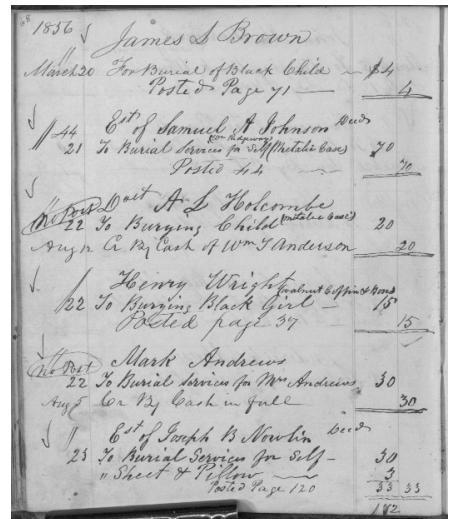 68
1856
James S Brown
March 20 For Burial of Black Child $4
Posted Page 71 4
" 44 Est of Samuel A Johnson Decd
21 To Burial Services for Self (Metalic Case) 70
Posted 44 70
No Post A L Holcombe
22 To Burying Child (Metalic Case) 20
Aug 12 Cr By Cash of Wm T Anderson 20
Henry Wright
(Walnut Coffin & Box)
22 To Burying Black Girl 15
Posted page 37 15
No Post Mark Andrews
22 To Burial Services for Mrs Andrews 30
Aug 5 Cr By Cash in full 30
" Est of Joseph B Nowlin Decd
23 To Burial Services for Self 30
" Sheet & Pillow 3
Posted Page 120 33 33
172